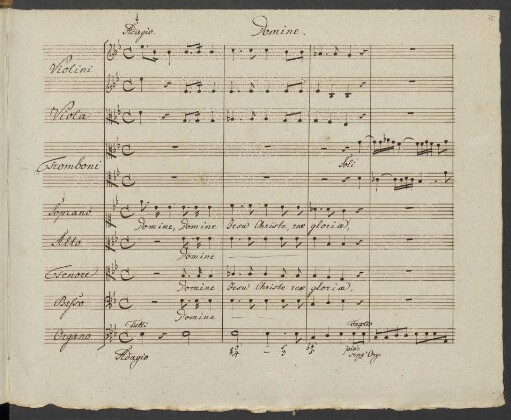 Adagio. Domine.
Violini
Viola
Tromboni
Soli
Soprano
Domine, Domine Jesu Christe, rex gloriæ,
Alto
Domine
Tenore
Domine Jesu Christe rex gloriæ,
Basso
Domine
Organo
Tutti
Fagotto
Adagio